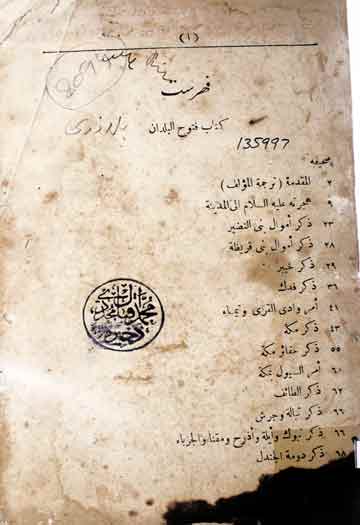 (١)
فهرست
كتاب فتوح البلدان
بلاذرى
135997
صحيفه
٢ المقدمة (ترجمة المؤلف)
٩ هجرته عليه السلام الى المدينة
٢٣ ذكر أموال بنى النضير
٢٨ ذكر أموال بنى قريظة
٢٩ ذكر خيبر
٣٦ ذكر فدك
٤١ أمر وادى القرى وتيماء
٤٣ ذكر مكة
٥٥ ذكر حفائر مكة
٦٠ أمر السيول بمكة
٦٢ ذكر الطائف
٦٦ ذكر تبالة وجرش
٦٦ ذكر تبوك وأيلة وأذرح ومقنا والجرباء
٦٨ ذكر دومة الجندل